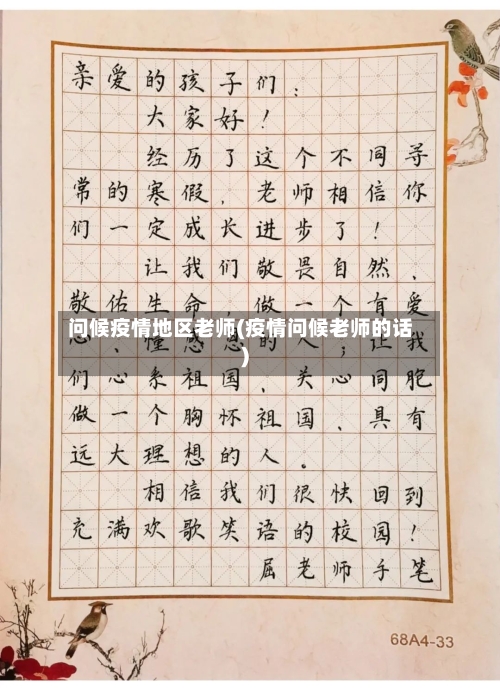 亲爱的孩子们：
大家好！
经历了这个不同寻
常的寒假，老师相信你
们一定成长进步了！
让我们敬畏自然、
敬佑生命、做一个有爱
问候疫情地区老师(疫情问候老师的话
)
心、懂感恩的人；让我
们心系祖国、关心同胞
做一个胸怀祖国、具有
远大理想的人。
相信我们很快回到
充满欢歌笑语的校园！
屈老师手笔
68A4-33